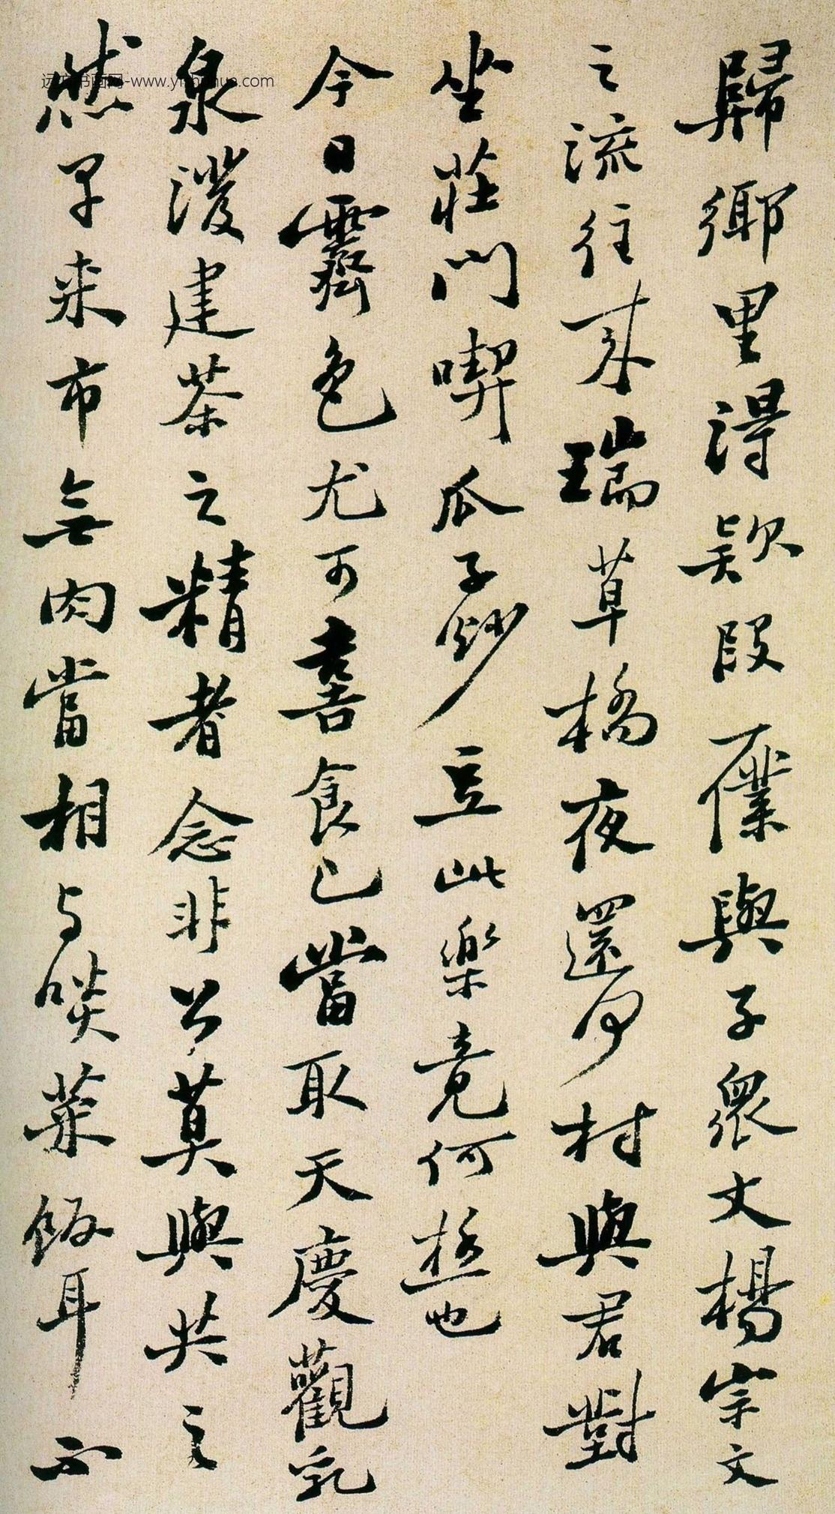 歸鄉里得款段僕與子衆丈楊宗文
之流往來瑞草橋夜還何村與君對
坐莊門喫瓜子炒豆此樂竟何極也
今日霽色尤可喜食已當取天慶觀乳
泉潑建茶之精者念非公莫與共之
然早来市無肉當相与啖菜飯耳不